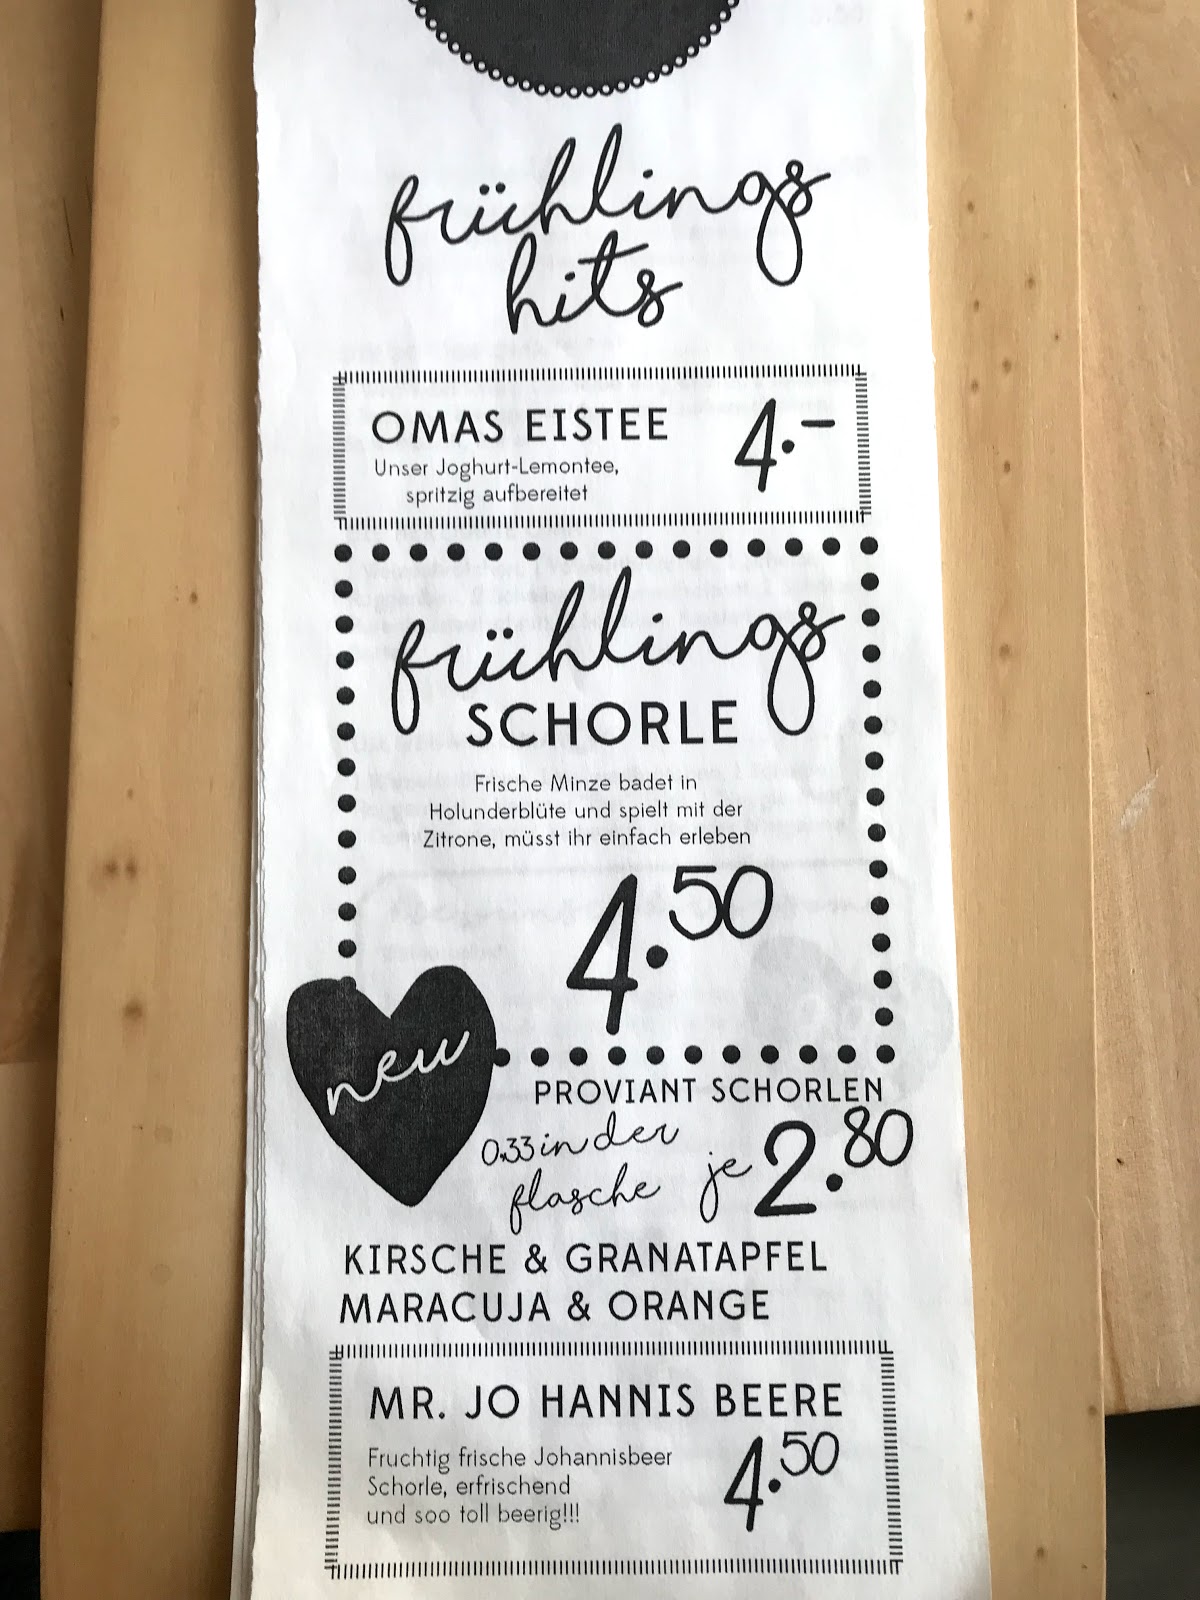 frühlings
hits
OMAS EISTEE
4.-
Unser Joghurt-Lemontee,
spritzig aufbereitet
frühlings
SCHORLE
Frische Minze badet in
Holunderblüte und spielt mit der
Zitrone, müsst ihr einfach erleben
4.50
new
PROVIANT SCHORLEN
0,33 in der
flasche je 2.80
KIRSCHE & GRANATAPFEL
MARACUJA & ORANGE
MR. JO HANNIS BEERE
Fruchtig frische Johannisbeer
Schorle, erfrischend
und soo toll beerig!!!
4.50